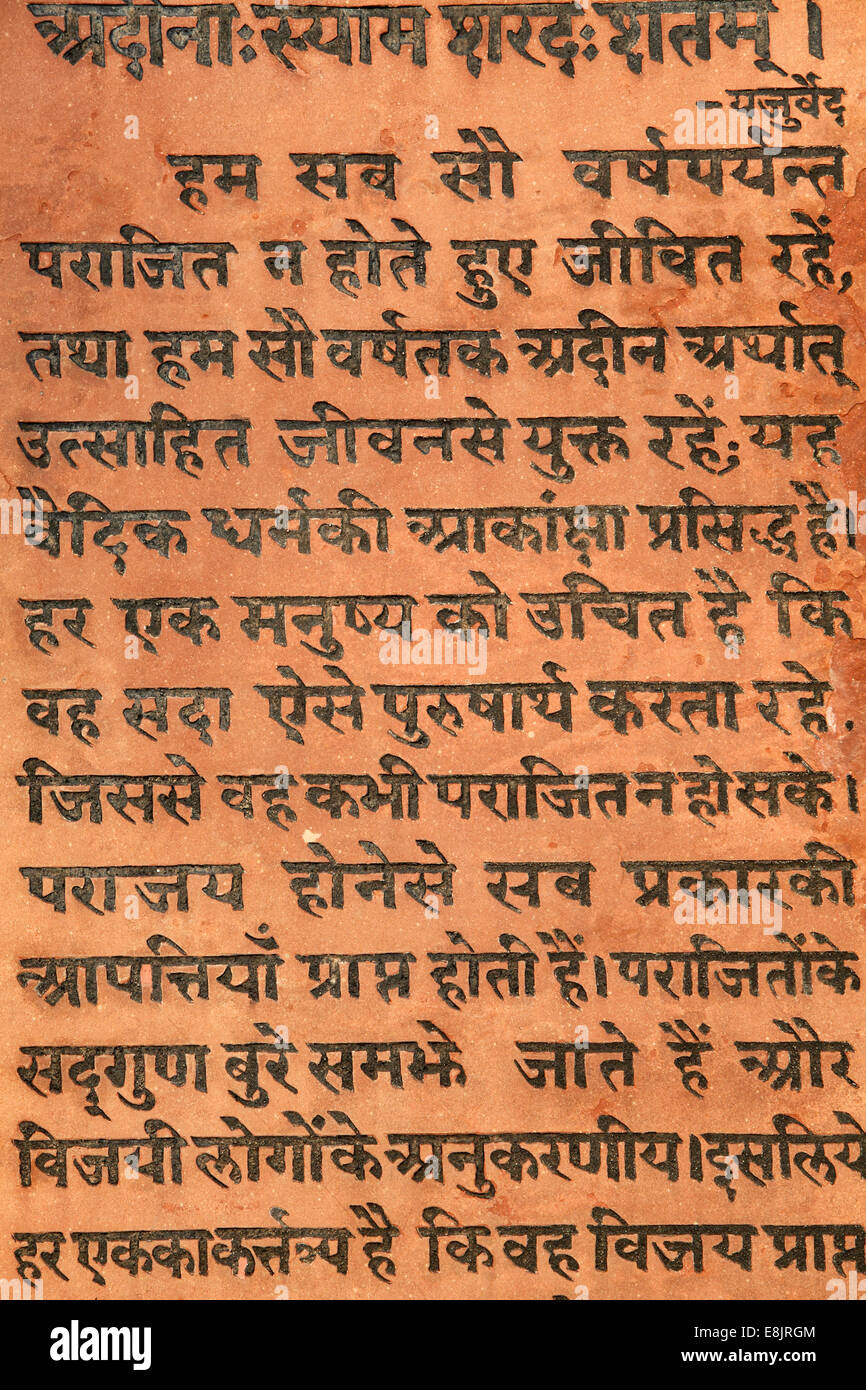 अदीनाः स्याम शरदः शतम् ।
- यजुर्वेद
हम सब सौ वर्षपर्यन्त
पराजित न होते हुए जीवित रहें,
तथा हम सौ वर्षतक अदीन अर्थात्
उत्साहित जीवनसे युक्त रहें; यह
वैदिक धर्मकी आकांक्षा प्रसिद्ध है।
हर एक मनुष्य को उचित है कि
वह सदा ऐसे पुरुषार्थ करता रहे.
जिससे वह कभी पराजित न हो सके।
पराजय होनेसे सब प्रकारकी
आपत्तियाँ प्राप्त होती हैं। पराजितोंके
सद्गुण बुरे समझे जाते हैं और
विजयी लोगोंके अनुकरणीय। इसलिये
हर एकका कर्त्तव्य है कि वह विजय प्राप्त
alamy
alamy stock photo
E8JRGM
www.alamy.com